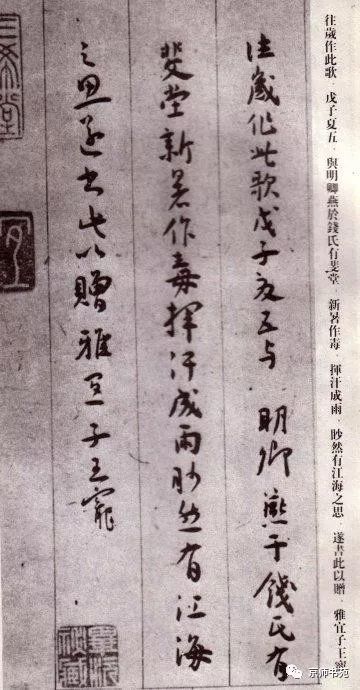 往歲作此歌戊子夏五與 明卿燕于錢氏有
斐堂新暑作毒揮汗成雨眇然有江海
之思遂書此以贈雅宜子王寵
三希堂
往歲作此歌 戊子夏五 與明卿燕於錢氏有斐堂 新暑作毒 揮汗成雨 眇然有江海之思 遂書此以贈 雅宜子王寵
京师书苑